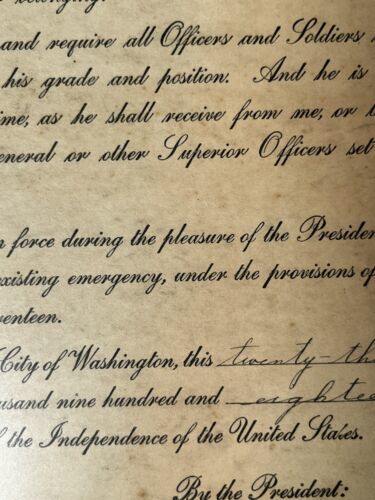 belonging.
and require all Officers and Soldiers
his grade and position. And he is
me, as he shall receive from me, or
eneral or other Superior Officers set
force during the pleasure of the Presiden
existing emergency, under the provisions of
venteen.
City of Washington, this twenty-th
usand nine hundred and eightee
f the Independence of the United States.
By the President: